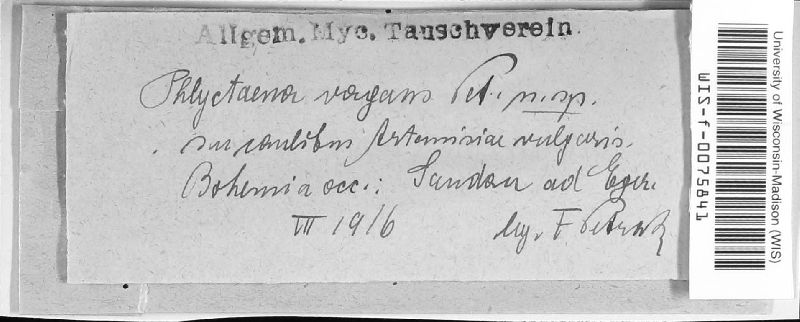 Allgem. Myc. Tauschverein.
Phlyctaena vagans Pet. n. sp.
in caulibus Artemisiae vulgaris.
Bohemia occ.: Sandau ad Eger.
III 1916 leg. F. Petrak
University of Wisconsin-Madison (WIS)
WIS-f-0075841